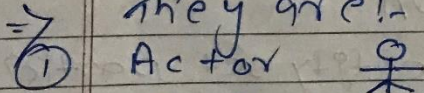 => They are:-
① Actor